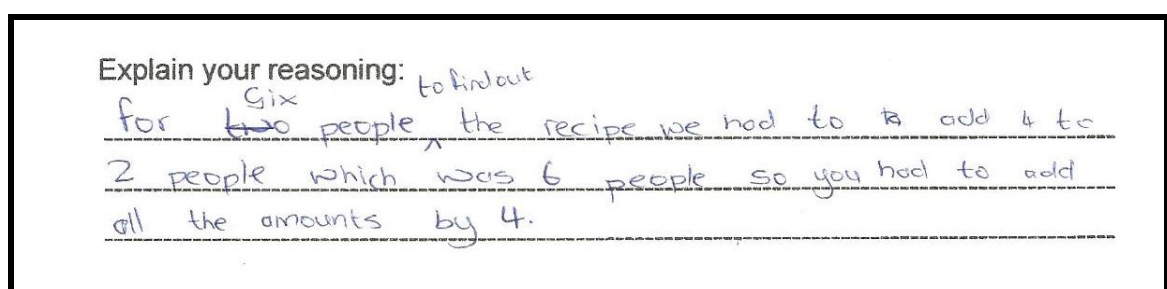 Explain your reasoning:
for six people to find out the recipe we had to add 4 to
2 people which was 6 people so you had to add
all the amounts by 4.